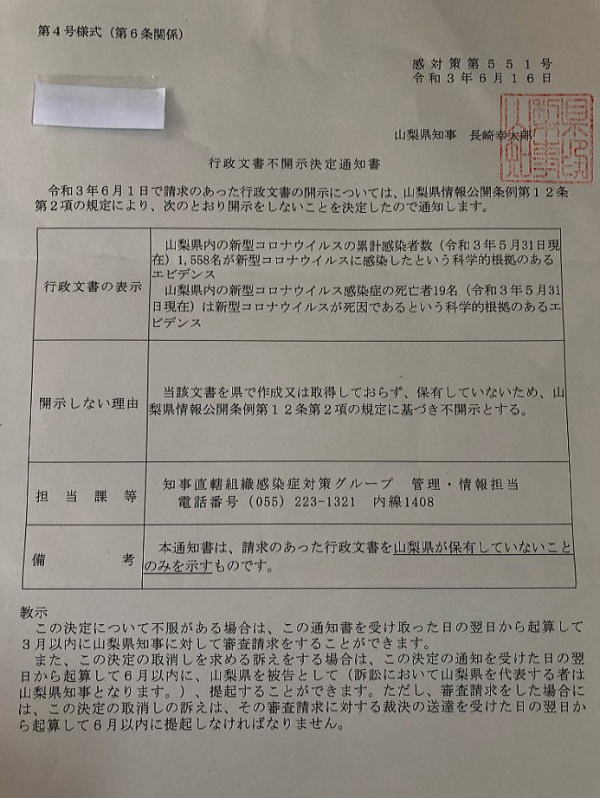 第４号様式（第６条関係）
感対策第５５１号
令和３年６月１６日
山梨県知事　長崎幸太郎
行政文書不開示決定通知書
令和３年６月１日で請求のあった行政文書の開示については、山梨県情報公開条例第１２条
第２項の規定により、次のとおり開示をしないことを決定したので通知します。
行政文書の表示
山梨県内の新型コロナウイルスの累計感染者数（令和３年５月31日現
在）1,558名が新型コロナウイルスに感染したという科学的根拠のある
エビデンス
山梨県内の新型コロナウイルス感染症の死亡者19名（令和３年５月31
日現在）は新型コロナウイルスが死因であるという科学的根拠のあるエ
ビデンス
開示しない理由
当該文書を県で作成又は取得しておらず、保有していないため、山
梨県情報公開条例第１２条第２項の規定に基づき不開示とする。
担当課等
知事直轄組織感染症対策グループ　管理・情報担当
電話番号（055）223-1321　内線1408
備考
本通知書は、請求のあった行政文書を山梨県が保有していないこと
のみを示すものです。
教示
この決定について不服がある場合は、この通知書を受け取った日の翌日から起算して
３月以内に山梨県知事に対して審査請求をすることができます。
また、この決定の取消しを求める訴えをする場合は、この決定の通知を受けた日の翌
日から起算して６月以内に、山梨県を被告として（訴訟において山梨県を代表する者は
山梨県知事となります。）、提起することができます。ただし、審査請求をした場合に
は、この決定の取消しの訴えは、その審査請求に対する裁決の送達を受けた日の翌日か
ら起算して６月以内に提起しなければなりません。